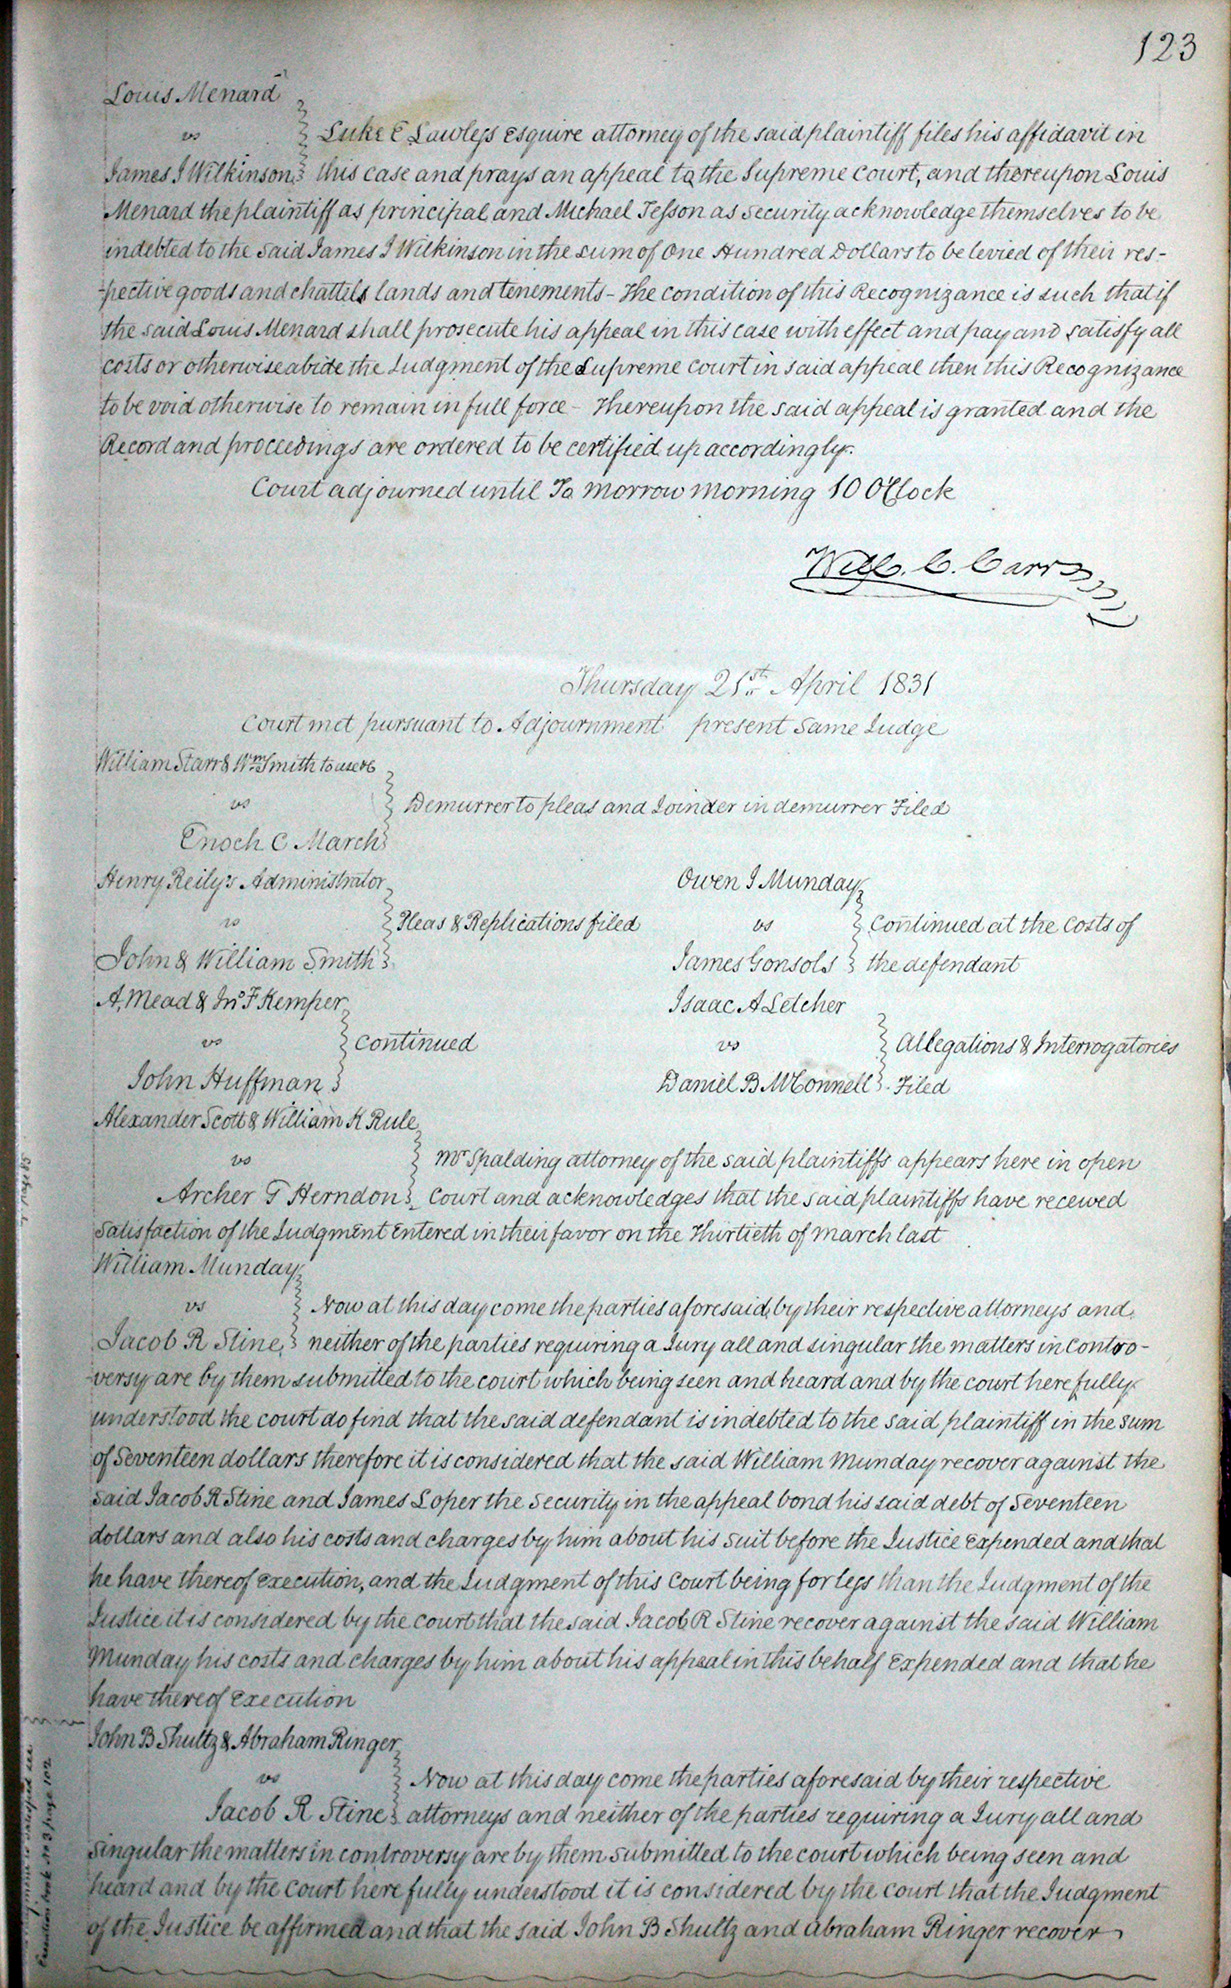 123
Louis Menard
vs
Luke E Lawless Esquire attorney of the said plaintiff files his affidavit in
James J Wilkinson this case and prays an appeal to the Supreme Court, and thereupon Louis
Menard the plaintiff as principal and Michael Tesson as Security acknowledge themselves to be
indebted to the said James J Wilkinson in the sum of One Hundred Dollars to be levied of their res-
-pective goods and chattels lands and tenements - The condition of this Recognizance is such that if
the said Louis Menard shall prosecute his appeal in this case with effect and pay and satisfy all
costs or otherwise abide the Judgment of the Supreme Court in said appeal then this Recognizance
to be void otherwise to remain in full force - Thereupon the said appeal is granted and the
Record and proceedings are ordered to be certified up accordingly.
Court adjourned until To morrow morning 10 OClock
Will. C. Carr
Thursday 21st April 1831
Court met pursuant to Adjournment present Same Judge
William Starr & Wm Smith to use &c
vs
Demurrer to pleas and Joinder in demurrer Filed
Enoch C March
Henry Reily's Administrator
vs
Pleas & Replications filed
John & William Smith
Owen J Munday
vs
Continued at the Costs of
James Gonsols the defendant
A. Mead & Jno F Kemper
vs
Continued
John Huffman
Isaac A Letcher
vs
Allegations & Interrogatories
Daniel B McConnell Filed
Alexander Scott & William K Rule
vs
Mr Spalding attorney of the said plaintiffs appears here in open
Archer G Herndon Court and acknowledges that the said plaintiffs have received
Satisfaction of the Judgment Entered in their favor on the Thirtieth of March last
William Munday
vs
Now at this day come the parties aforesaid by their respective attorneys and
Jacob R Stine neither of the parties requiring a Jury all and singular the matters in Contro-
-versy are by them submitted to the court which being seen and heard and by the court here fully
understood the court do find that the said defendant is indebted to the said plaintiff in the sum
of Seventeen dollars therefore it is considered that the said William Munday recover against the
said Jacob R Stine and James Loper the Security in the appeal bond his said debt of Seventeen
dollars and also his costs and charges by him about his suit before the Justice Expended and that
he have thereof Execution, and the Judgment of this Court being for less than the Judgment of the
Justice it is considered by the court that the said Jacob R Stine recover against the said William
Munday his costs and charges by him about his appeal in this behalf Expended and that he
have thereof Execution
John B Shultz & Abraham Ringer
vs
Now at this day come the parties aforesaid by their respective
Jacob R Stine attorneys and neither of the parties requiring a Jury all and
Singular the matters in controversy are by them submitted to the court which being seen and
heard and by the court here fully understood it is considered by the court that the Judgment
of the Justice be affirmed and that the said John B Shultz and Abraham Ringer recover
satisfied see
Execution book No 3 page 102